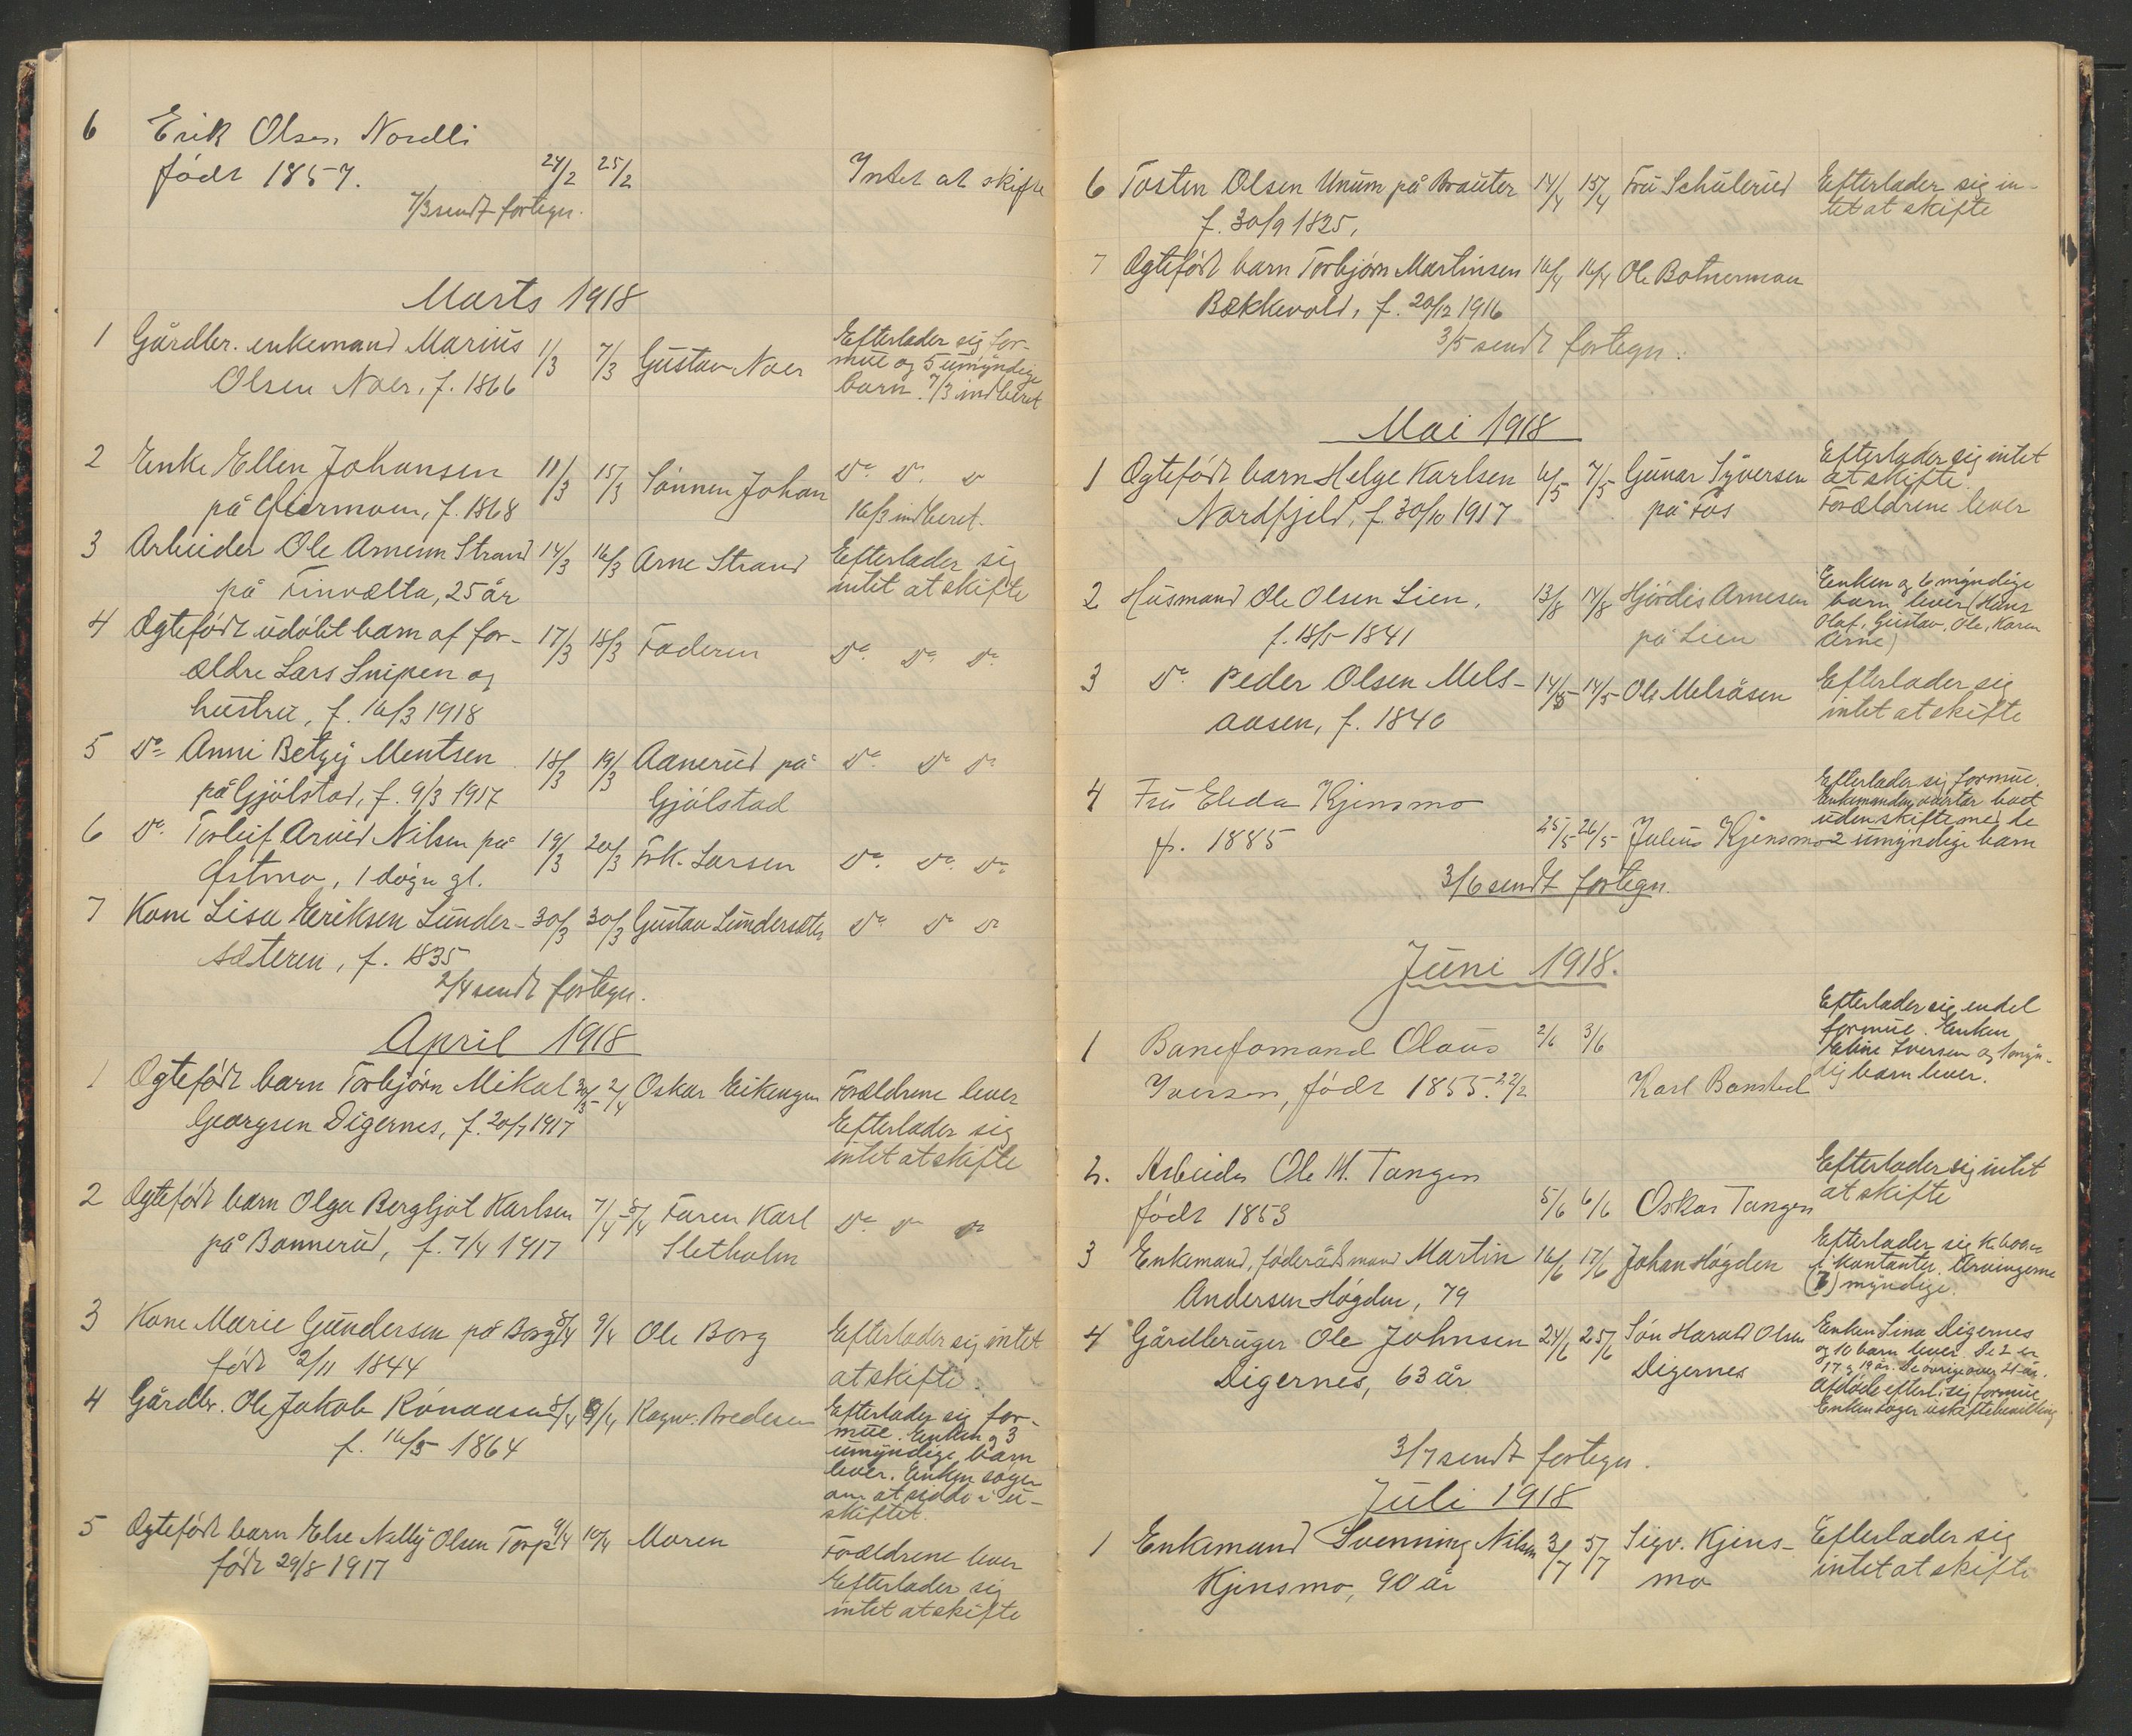 6 Erik Olsen Nordli
født 1857. 24/2 25/2 Intet at skifte
7/3 sendt fortegn.
Marts 1918
1 Gårdbr. enkemand Marius 1/3 7/3 Gustav Noer Efterlader sig for-
Olsen Noer, f. 1866 mue og 5 umyndige
barn. 7/3 indberet
2 Enke Ellen Johansen 11/3 15/3 Sønnen Johan Do. Do. Do
på f. 1868 16/3 indberet.
3 Arbeider Ole Arnesen Strand 14/3 16/3 Arne Strand Efterlader sig
på Finvælta, 25 år intet at skifte
4 Ogtefødt udøbt barn af for- 17/3 18/3 Faderen Do. Do. Do.
ældre Lars Snipen og
hustru, f. 16/3 1918
5 Do= Anni Betzy Mentsen 18/3 19/3 Aanerud på Do. Do Do
på Gjølstad, f. 9/3 1917 Gjølstad
6 Do. Torleif Arvid Nilsen på 19/3 20/3 Frk. Larsen Do. Do. Do
Østmo, 1 døgn gl.
7 Kone Lisa Eriksen Lunder- 30/3 30/3 Gustav Lundersæter Do Do Do
sæteren, f. 1835
2/4 sendt fortegn.
April 1918
1 Ogtefødt barn Torbjørn Mikal 30/3 2/4 Oskar Eikengen Forældrene lever
Georgsen Digernes, f. 20/7 1917 Efterlader sig
intet at skifte
2 Ogtefødt barn Olga Bergljot Karlsen 7/4 8/4 Faren Karl Do Do Do
på Bonnerud, f. 7/4 1917 Sletholm
3 Kone Marie Gundersen på Borg 8/4 9/4 Ole Borg Efterlader sig intet
født 2/11 1844 at skifte.
4 Gårdbr. Ole Jakob Rønaasen 8/4 9/4 Ragnv. Bredesen Efterlader sig for-
f. 16/5 1864 mue. Enken og 3
umyndige barn
lever. Enken søger
om at sidde i u-
skiftet.
5 Ogtefødt barn Else Nelly Olsen Torp 9/4 10/4 Moren Forældrene lever
født 29/8 1917 Efterlader sig
intet at skifte
6 Tosten Olsen Unum på Brauter 14/4 15/4 Fru Schulerud Efterlader sig in-
f. 30/9 1825, tet at skifte
7 Ogtefødt barn Torbjørn Martinsen 16/4 16/4 Ole Botnermoen
Bækkevold, f. 20/12 1916
3/5 sendt fortegn.
Mai 1918
1 Ogtefødt barn Helge Karlsen 6/5 7/5 Gunar Syversen Efterlader sig intet
Nordfjeld, f. 30/10 1917 på Fos at skifte.
Forældrene lever
2 Husmand Ole Olsen Lien, 13/8 14/8 Hjørdis Arnesen Enken og 6 myndige
f. 18/5 1841 på Lien barn lever (Hans
Olaf, Gustav, Ole, Karen
Arne)
3 Do. Peder Olsen Mels- 14/5 14/5 Ole Melsåsen Efterlader sig
aasen, f. 1840 intet at skifte
4 Fru Eleda Kjensmo Efterlader sig formue.
Enkemanden overtar boet
uden skifte med de
f. 1885 25/5 26/5 Julius Kjensmo 2 umyndige barn
3/6 sendt fortegn.
Juni 1918.
1 Baneformand Olaus 2/6 3/6 Efterlader sig endel
formue. Enken
Iversen, født 1855. 22/2 Karl Banstad Eline Iversen og 1 myn-
dig barn lever.
2. Arbeider Ole M. Tangen Efterlader sig intet
født 1853 5/6 6/6 Oskar Tangen at skifte
3 Enkemand, føderådsmand Martin 16/6 17/6 Johan Høgden Efterlader sig k. 600.00
Andersen Høgden, 79 i kontanter. Arvingerne
(7) myndige.
4 Gårdbruger Ole Johnsen 24/6 25/6 Søn Harald Olsen Enken Lina Digernes
Digernes, 63 år Digernes og 10 barn lever. De 2 er
17 og 19 år. De øvrige over 21 år.
Afdøde efterl. sig formue.
Enken søger uskiftebevilling
3/7 sendt fortegn.
Juli 1918
1 Enkemand Svenning Nilsen 3/7 5/7 Sigv. Kjens- Efterlader sig
Kjensmo, 90 år mo intet at skifte